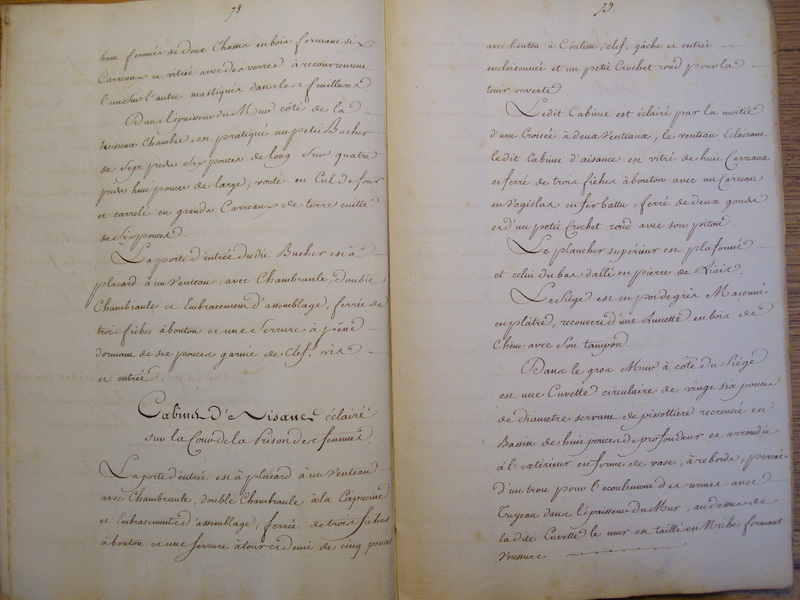 78
formée de deux Chassis en bois formant six
Carreaux et vitrée avec des verres à recouvrement
l'un sur l'autre mastiqués dans les feuillures
Dans l'épaisseur du Mur côté de la
Chambre, est pratiqué un petit Bucher
de Sept pieds Six pouces de long Sur quatre
pieds huit pouces de large, vouté en Cul de four
et carrelé en grands Carreaux de terre cuitte
de Six pouces
La porte d'entrée dudit Bucher est à
placard à un Venteau, avec Chambranle, double
Chambranle et Embrasement d'assemblage, ferrée de
trois fiches à bouton et une Serrure à pêne
dormant de six pouces garnie de Clef, vis
et entrée
Cabinet d'Aisance éclairé
sur la Cour de la Prison des femmes
La porte d'entrée est à placard à un Venteau
avec Chambranle, double Chambranle à la Capucine
et Embrasement d'assemblage, ferrée de trois fiches
à bouton et une serrure à tour et demi de cinq pouces
79.
avec bouton à Coulisse, clef, gâche et entrée
encloisonnée et un petit Crochet rond pour la
tenir ouverte
Ledit Cabinet est éclairé par la moitié
d'une Croisée à deux Venteaux, le venteau Eclairant
ledit Cabinet d'aisance est vitré de huit Carreaux
et ferré de trois fiches à bouton avec un Carreau
en Vagislas en fer battu, ferré de deux gonds
et d'un petit Crochet rond avec son piton
Le plancher supérieur est plafonné
et celui du bas dallé en pierre de Liais.
Le Siège est en pots de grès Maçonné
en plâtre, recouvert d'une Lunette en bois de
Chêne avec Son tampon.
Dans le gros Mur à côté du Siège
est une Cuvette circulaire de vingt six pouces
de diametre servant de pissottière recreusée en
Bassin de huit pouces de profondeur et arrondie
à l'extérieur en forme de vase, à rebords, percée
d'un trou pour l'ecoulement des urines avec
Tuyeau dans l'épaisseur du Mur, au dessus de
la dite Cuvette le mur est taillé en Niche formant
Voussure